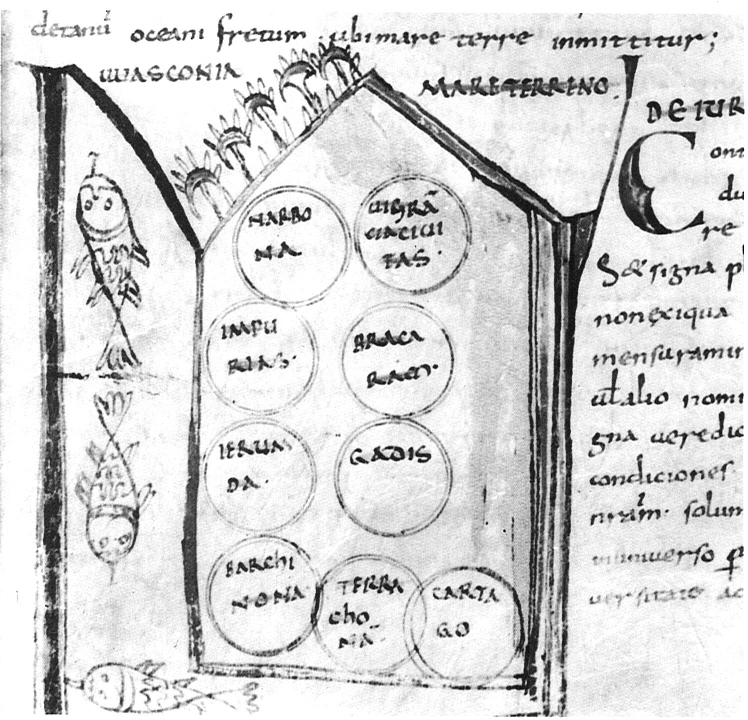 oceani fretum ubi mare terre inmittitur;
UUASCONIA
MARE TERRENO
DE IUR
NARBO
NA
CIACIUI
TAS
IMPU
RIAS
BRACA
IERUN
DA
GADIS
BARCHI
NONA
TERRA
cho
NA
CARTA
GO
Con
du
re
Sed signa p
non exiqua
mensuramur
ul alio nomi
gna ueredic
condiciones
nram solum
uniuerso p
uersitate ac